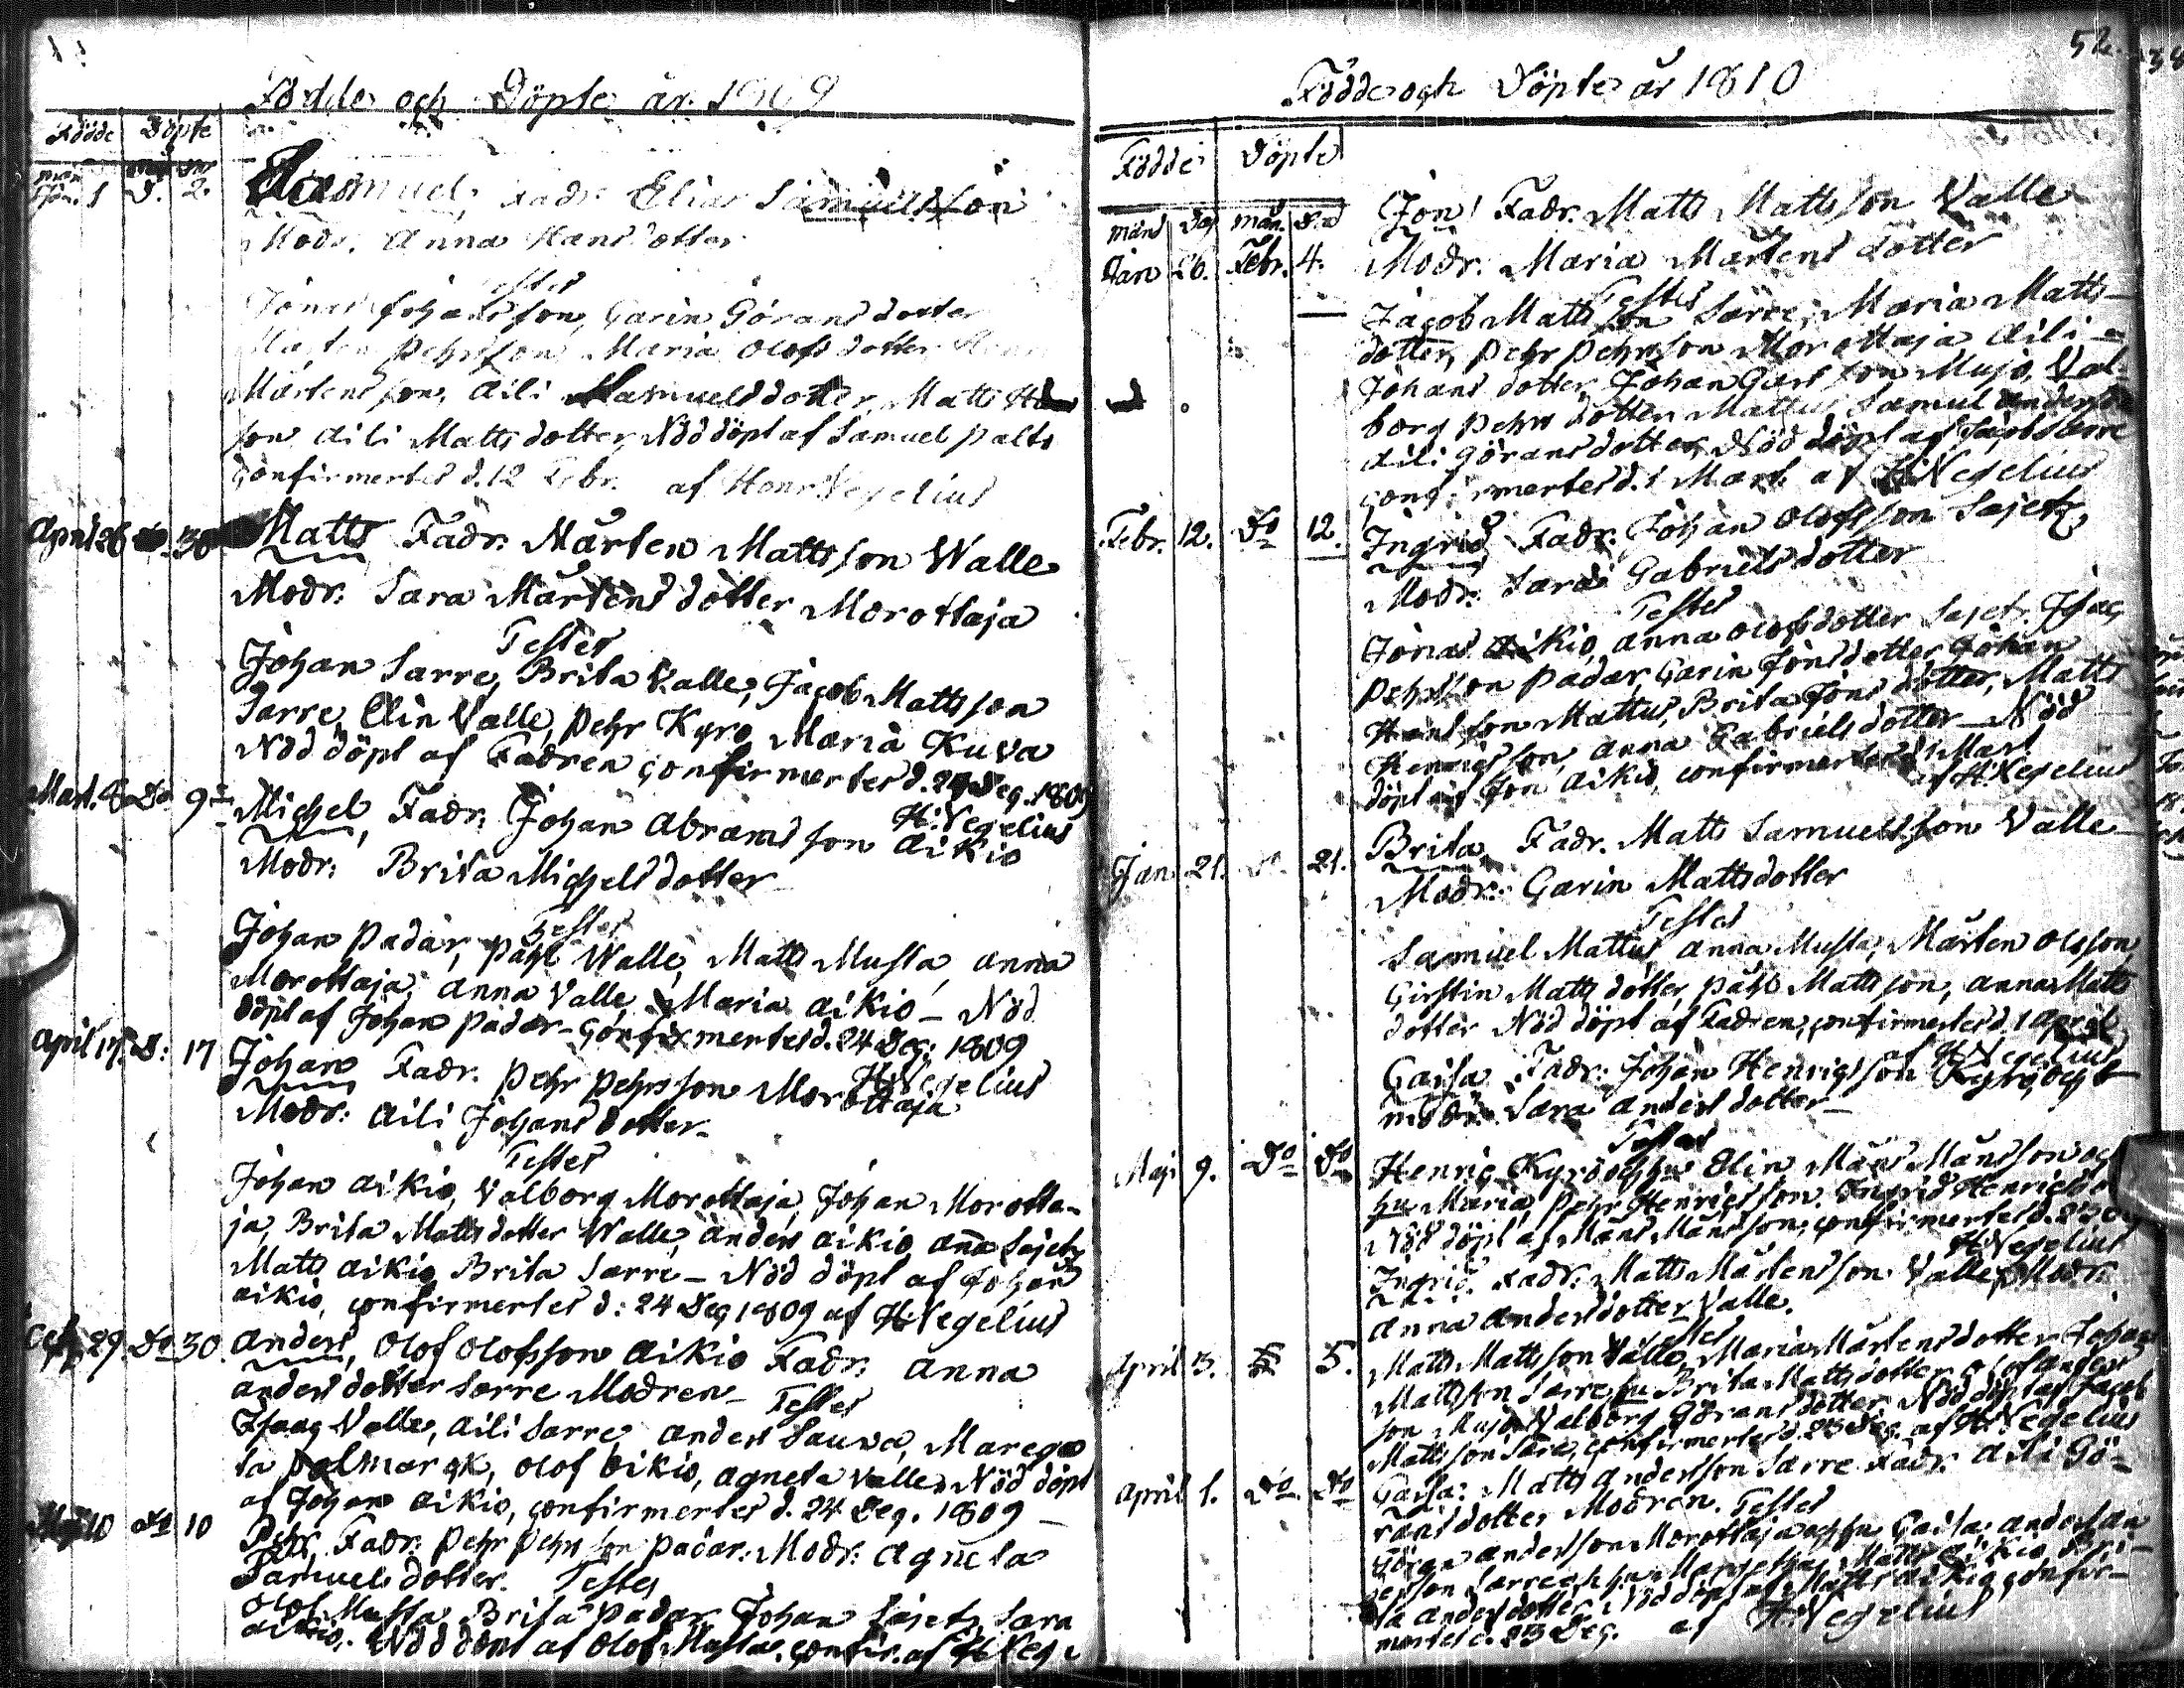 Födde och Döpte år 1809
Födde Döpte
Jan. 1 D. 2. Samuel, Fadr. Elias Samuelsson
Modr. Anna Hans dotter
Testes
Jonas Johansson, Carin Görans dotter
Mårten Pehrsson Maria Olofs dotter Henr
Mårtensson, Aili Samuelsdotter, Matts
son Aili Matts dotter, Nöd döpt af Samuel Palto
Confirmertes d. 12 Febr. af Henr. Wegelius
April 26 30 Matts Fadr. Mårten Mattsson Walle
Modr: Sara Mårtens dotter Morottaja
Testes
Johan Sarre, Brita Valle, Jacob Mattsson
Sarre, Elin Valle, Pehr Kyro Maria Kuva
Nöd döpt af Fadren confirmertes d. 24 Dec. 1809
H: Wegelius
Mart. 8 Do 9 Michel, Fadr. Johan Abrams son Aikio
Modr: Brita Michels dotter
Testes
Johan Padar, Påhl Walle, Matts Musta, Anna
Morottaja, Anna Valle, Maria Aikio - Nöd
döpt af Johan Padar - Confirmertes d. 24 Dec: 1809
H: Wegelius
April 17. D: 17 Johan Fadr. Pehr Pehrsson Morottaja
Modr: Aili Johans dotter
Testes
Johan Aikio, Valborg Morottaja, Johan Morotta-
ja, Brita Matts dotter Walle, Anders Aikio, Anna Sajetz
Matts Aikio, Brita Sarre - Nöd döpt af Johan
Aikio, confirmertes d: 24 Dec 1809 af H: Wegelius
29. Do 30. Anders, Olof Olofsson Aikio Fadr: Anna
Anders dotter Sarre Modren - Testes
Isaac Valle, Aili Sarre, Anders Sauva, Marega
ta Palmarck, Olof Aikio, Agneta Valle Nöd döpt
af Johan Aikio, confirmertes d. 24 Dec. 1809 -
10 Do 10 Pehr, Fadr: Pehr Pehrsson Padar. Modr: Agneta
Samuels dotter. Testes
Olof Musta Brita Padar Johan Sajetz, Sara
Aikio. Nöd döpt af Olof Musta. confir. af H: Weg
52.
Födde och Döpte år 1810
Födde Döpte
månd Dag mån. Dag
Jan 26. Febr. 4. Jon! Fadr. Matts Mattsson Valle
Modr. Maria Mårtens dotter
Testes
Jacob Mattsson Sarre, Maria Matts-
dotter, Pehr Pehrsson Morottaja Aili -
Johans dotter, Johan Carlsson Mujo, Val-
borg Pehrs dotter Mattus Samul Andersson
Aili Görans dotter, Nöd döpt af Jacob Sarre
confirmertes d. 1 Mart. af H: Wegelius
Febr. 12. Do 12. Ingrid Fadr. Johan Olofsson Sajetz
Modr: Sara Gabriels dotter
Testes
Jonas Aikio, Anna Olofsdotter Sajet. Isac
Pehrsson Padar, Carin Jonsdotter Johan
Hansson Mattus, Brita Jons dotter, Matts
Henricsson, Anna Gabriels dotter - Nöd
döpt af Jon Aikio, confirmertes d. 1 Mart
af H. Wegelius
Jan 21. 21. Brita Fadr. Matts Samuelsson Valle
Modr: Carin Mattsdotter
Testes
Samuel Mattus, Anna Musta, Mårten Olsson,
Girstin Matts dotter, Påhl Mattsson, Anna Matts
dotter Nöd döpt af Fadren, confirmertes d. 1 April
af H: Wegelius
Caisa Fadr: Johan Henricsson Kyrö, och
modr: Sara Anders dotter -
Testes
Maji 9. Do Do Henric Kyrö och hu Elin Måns Månsson och
hu Maria, Pehr Henricsson. Ingrid Henricsd
Nöd döpt af Måns Månsson, confirmertes d. 23
H: Wegelius
Ingrid. Fadr: Matts Mårtensson Valle, Modr.
Anna Anders dotter Valle.
Testes
April 3. 5. Matts Mattsson Valle, Maria Mårtens dotter Johan
Mattsson Sarre, hu Brita Matts dotter Olof Anders
son Mujo, Valborg Görans dotter Nöd döpt af Jacob
Mattsson Sarre, confirmertes d. 23 Dec. af H: Wegelius
April 1. Do. Do Caisa: Matts Andersson Sarre Fadr. Aili Gö-
rans dotter Modren. Testes
Göran Andersson Morottaja och hu Caisa, Anders An
dersson Sarre och hu Margetha, Matts Aikio, Bri-
ta Anders dotter, Nöd döpt af Matts Aikio, confir-
mertes d. 23 Dec. af H: Wegelius